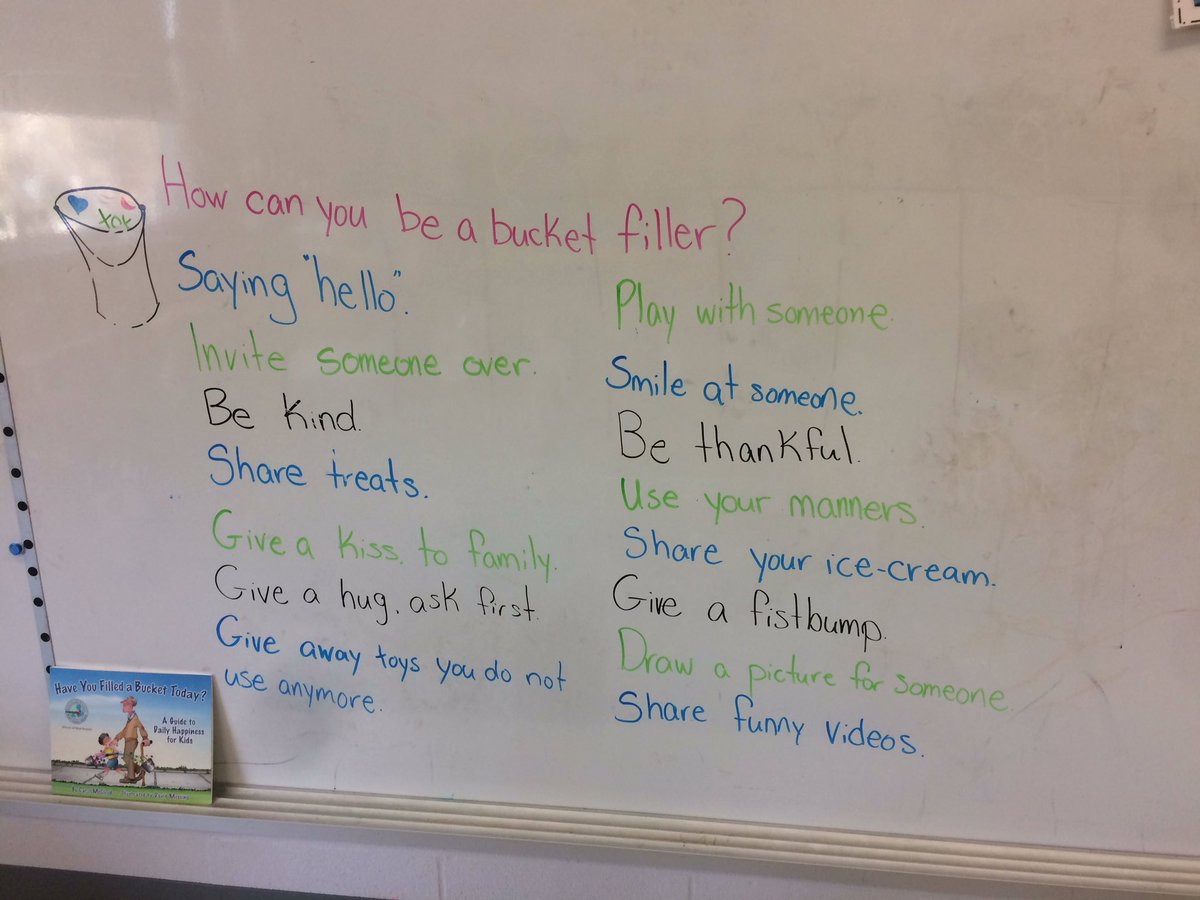 How can you be a bucket filler?
Saying "hello".
Invite someone over.
Be Kind.
Share treats.
Give a kiss. to family.
Give a hug. ask first.
Give away toys you do not
use anymore.
Play with someone.
Smile at someone.
Be thankful.
Use your manners.
Share your ice-cream.
Give a fistbump.
Draw a picture for someone.
Share funny videos.
Have You Filled a Bucket Today?
A Guide to
Daily Happiness
for Kids